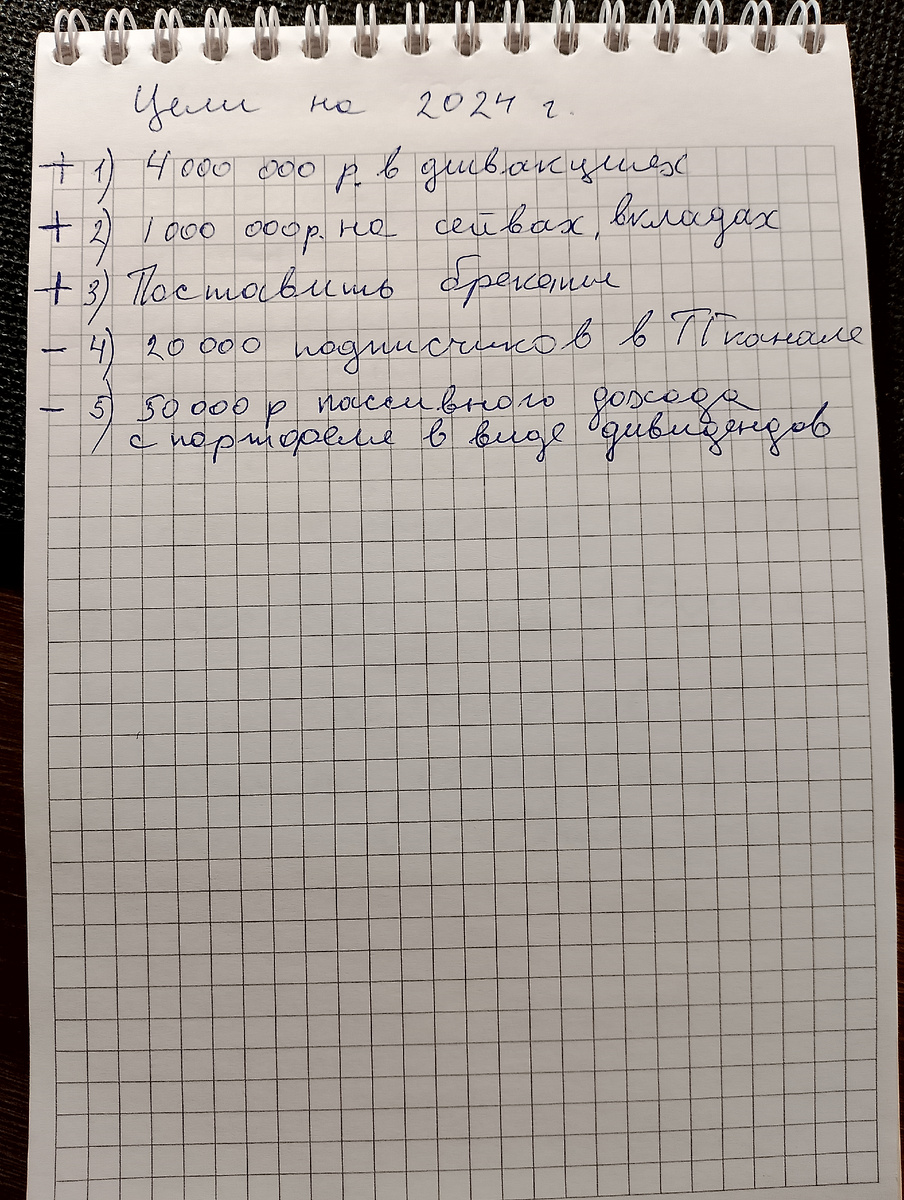 Цели на 2024 г.
+ 1) 4 000 000 р. в дивакциях
+ 2) 1 000 000р. на сейвах, вкладах
+ 3) Поставить брекеты
- 4) 20 000 подписчиков в ТГ канале
- 5) 50 000 р пассивного дохода
с портфеля в виде дивидендов